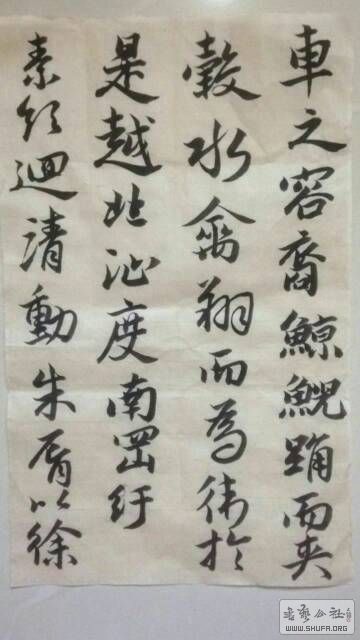 車之容裔鯨鯢踊而夾
轂水禽翔而為衛於
是越北沚度南岡紆
素領迴清動朱脣以徐
書藝公社
WWW.SHUFA.ORG